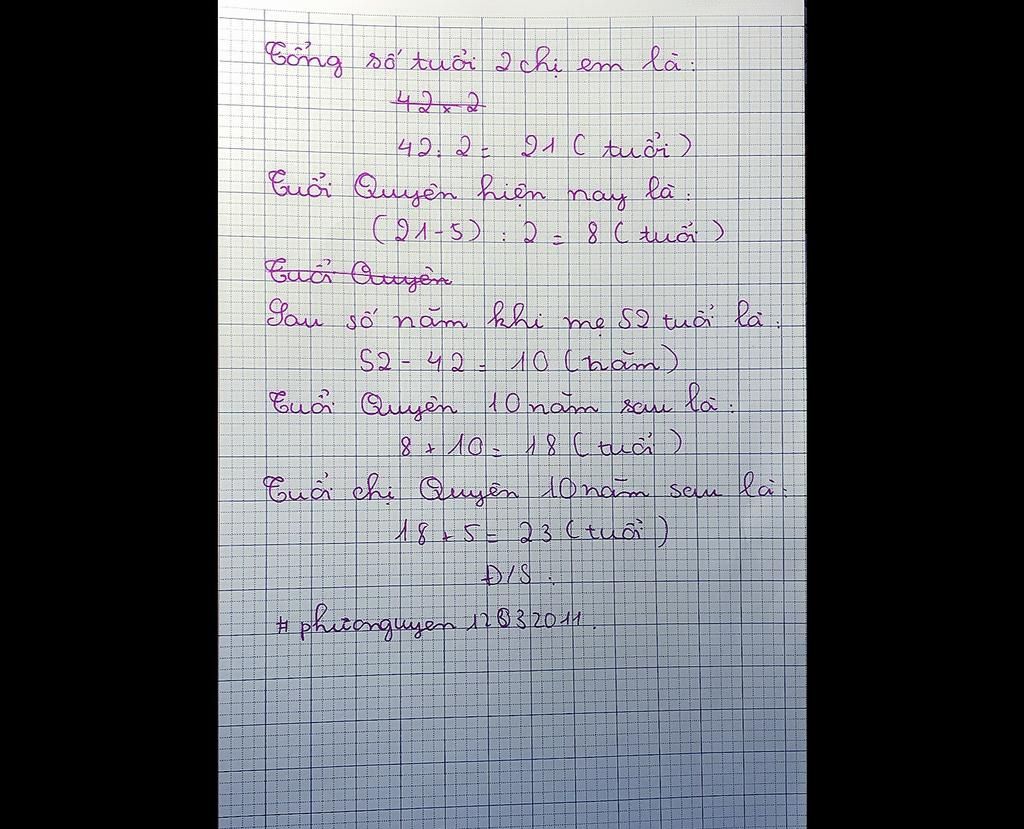 Tổng số tuổi 2 chị em là:
42 × 2
42 : 2 = 21 ( tuổi )
Tuổi Quyên hiện nay là:
( 21 - 5 ) : 2 = 8 ( tuổi )
Tuổi Quyên
Sau số năm khi mẹ 52 tuổi là:
52 - 42 = 10 ( năm )
Tuổi Quyên 10 năm sau là:
8 + 10 = 18 ( tuổi )
Tuổi chị Quyên 10 năm sau là:
18 + 5 = 23 ( tuổi )
Đ/S :
# phuonguyen 12032011.